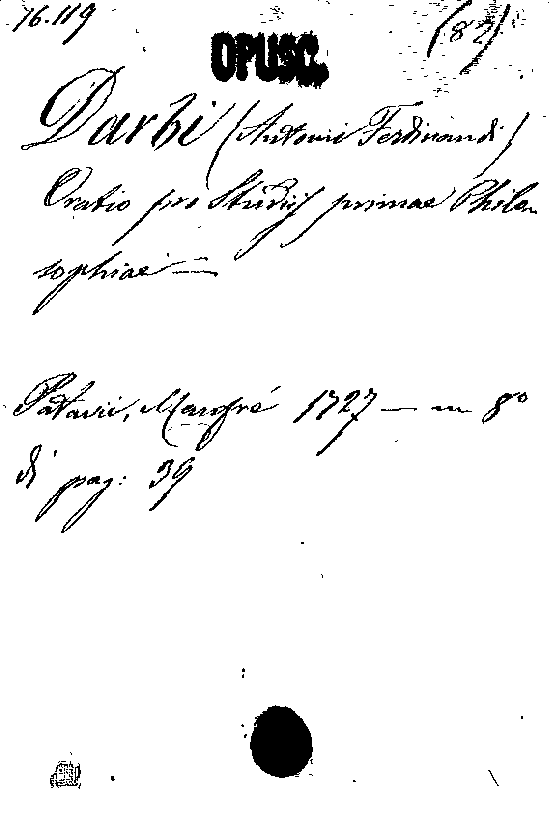 76.119
(82)
OPUSC.
Darbi (Antonii Ferdinandi)
Oratio pro Studijs primae Philo
sophiae —
Patavii, Manfré 1727 — in 8º
di pag: 39